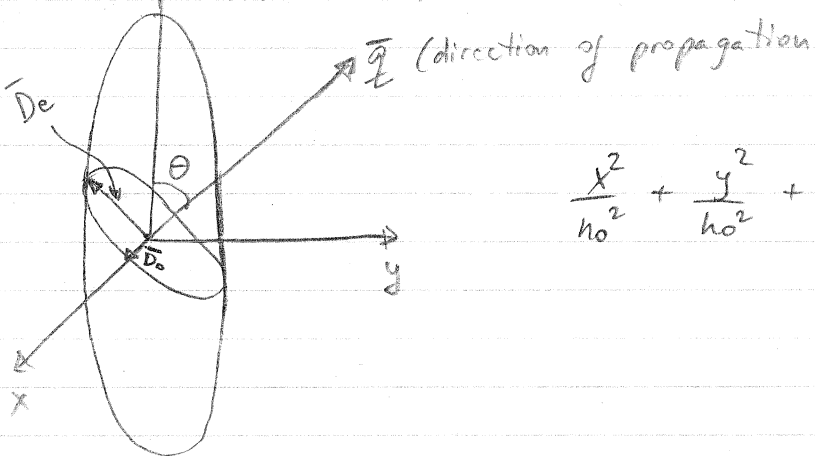 q̄ (direction of propagation
D̄e
θ
x²/n₀² + y²/n₀² +
D̄₀
y
x